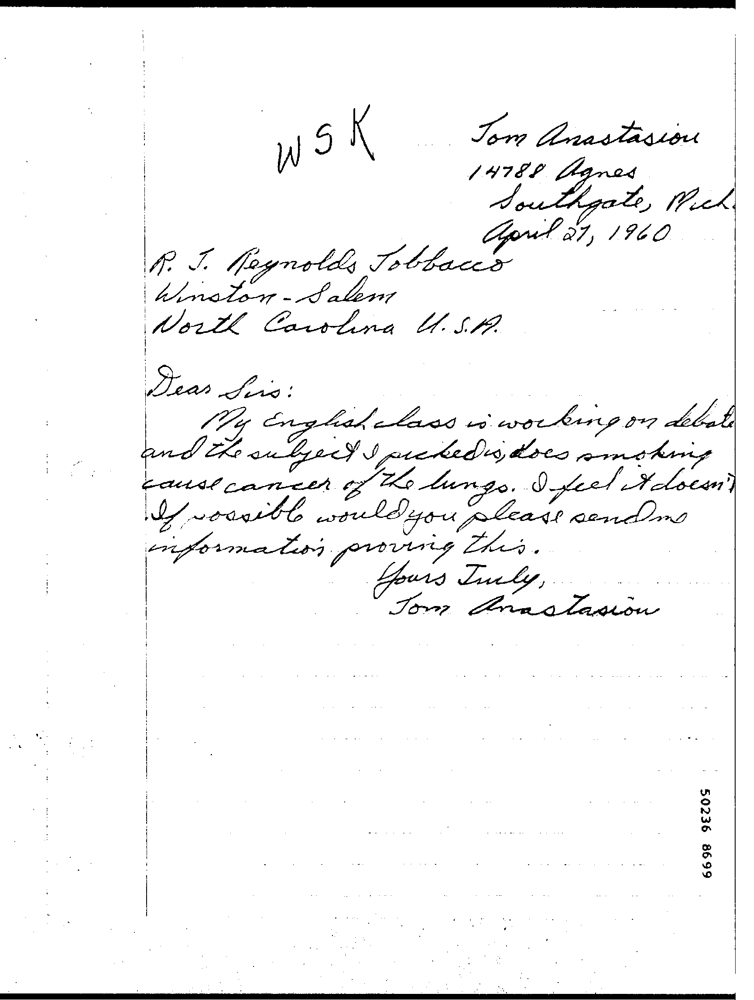 WSK
Tom Anastasiou
14788 Agnes
Southgate, Mich.
April 27, 1960
R. J. Reynolds Tobbacco
Winston-Salem
North Carolina U.S.A.
Dear Sirs:
My English class is working on debate
and the subject I picked is, does smoking
cause cancer of the lungs. I feel it doesn't
If possible would you please send me
information proving this.
Yours Truly,
Tom Anastasiou
50236 8699